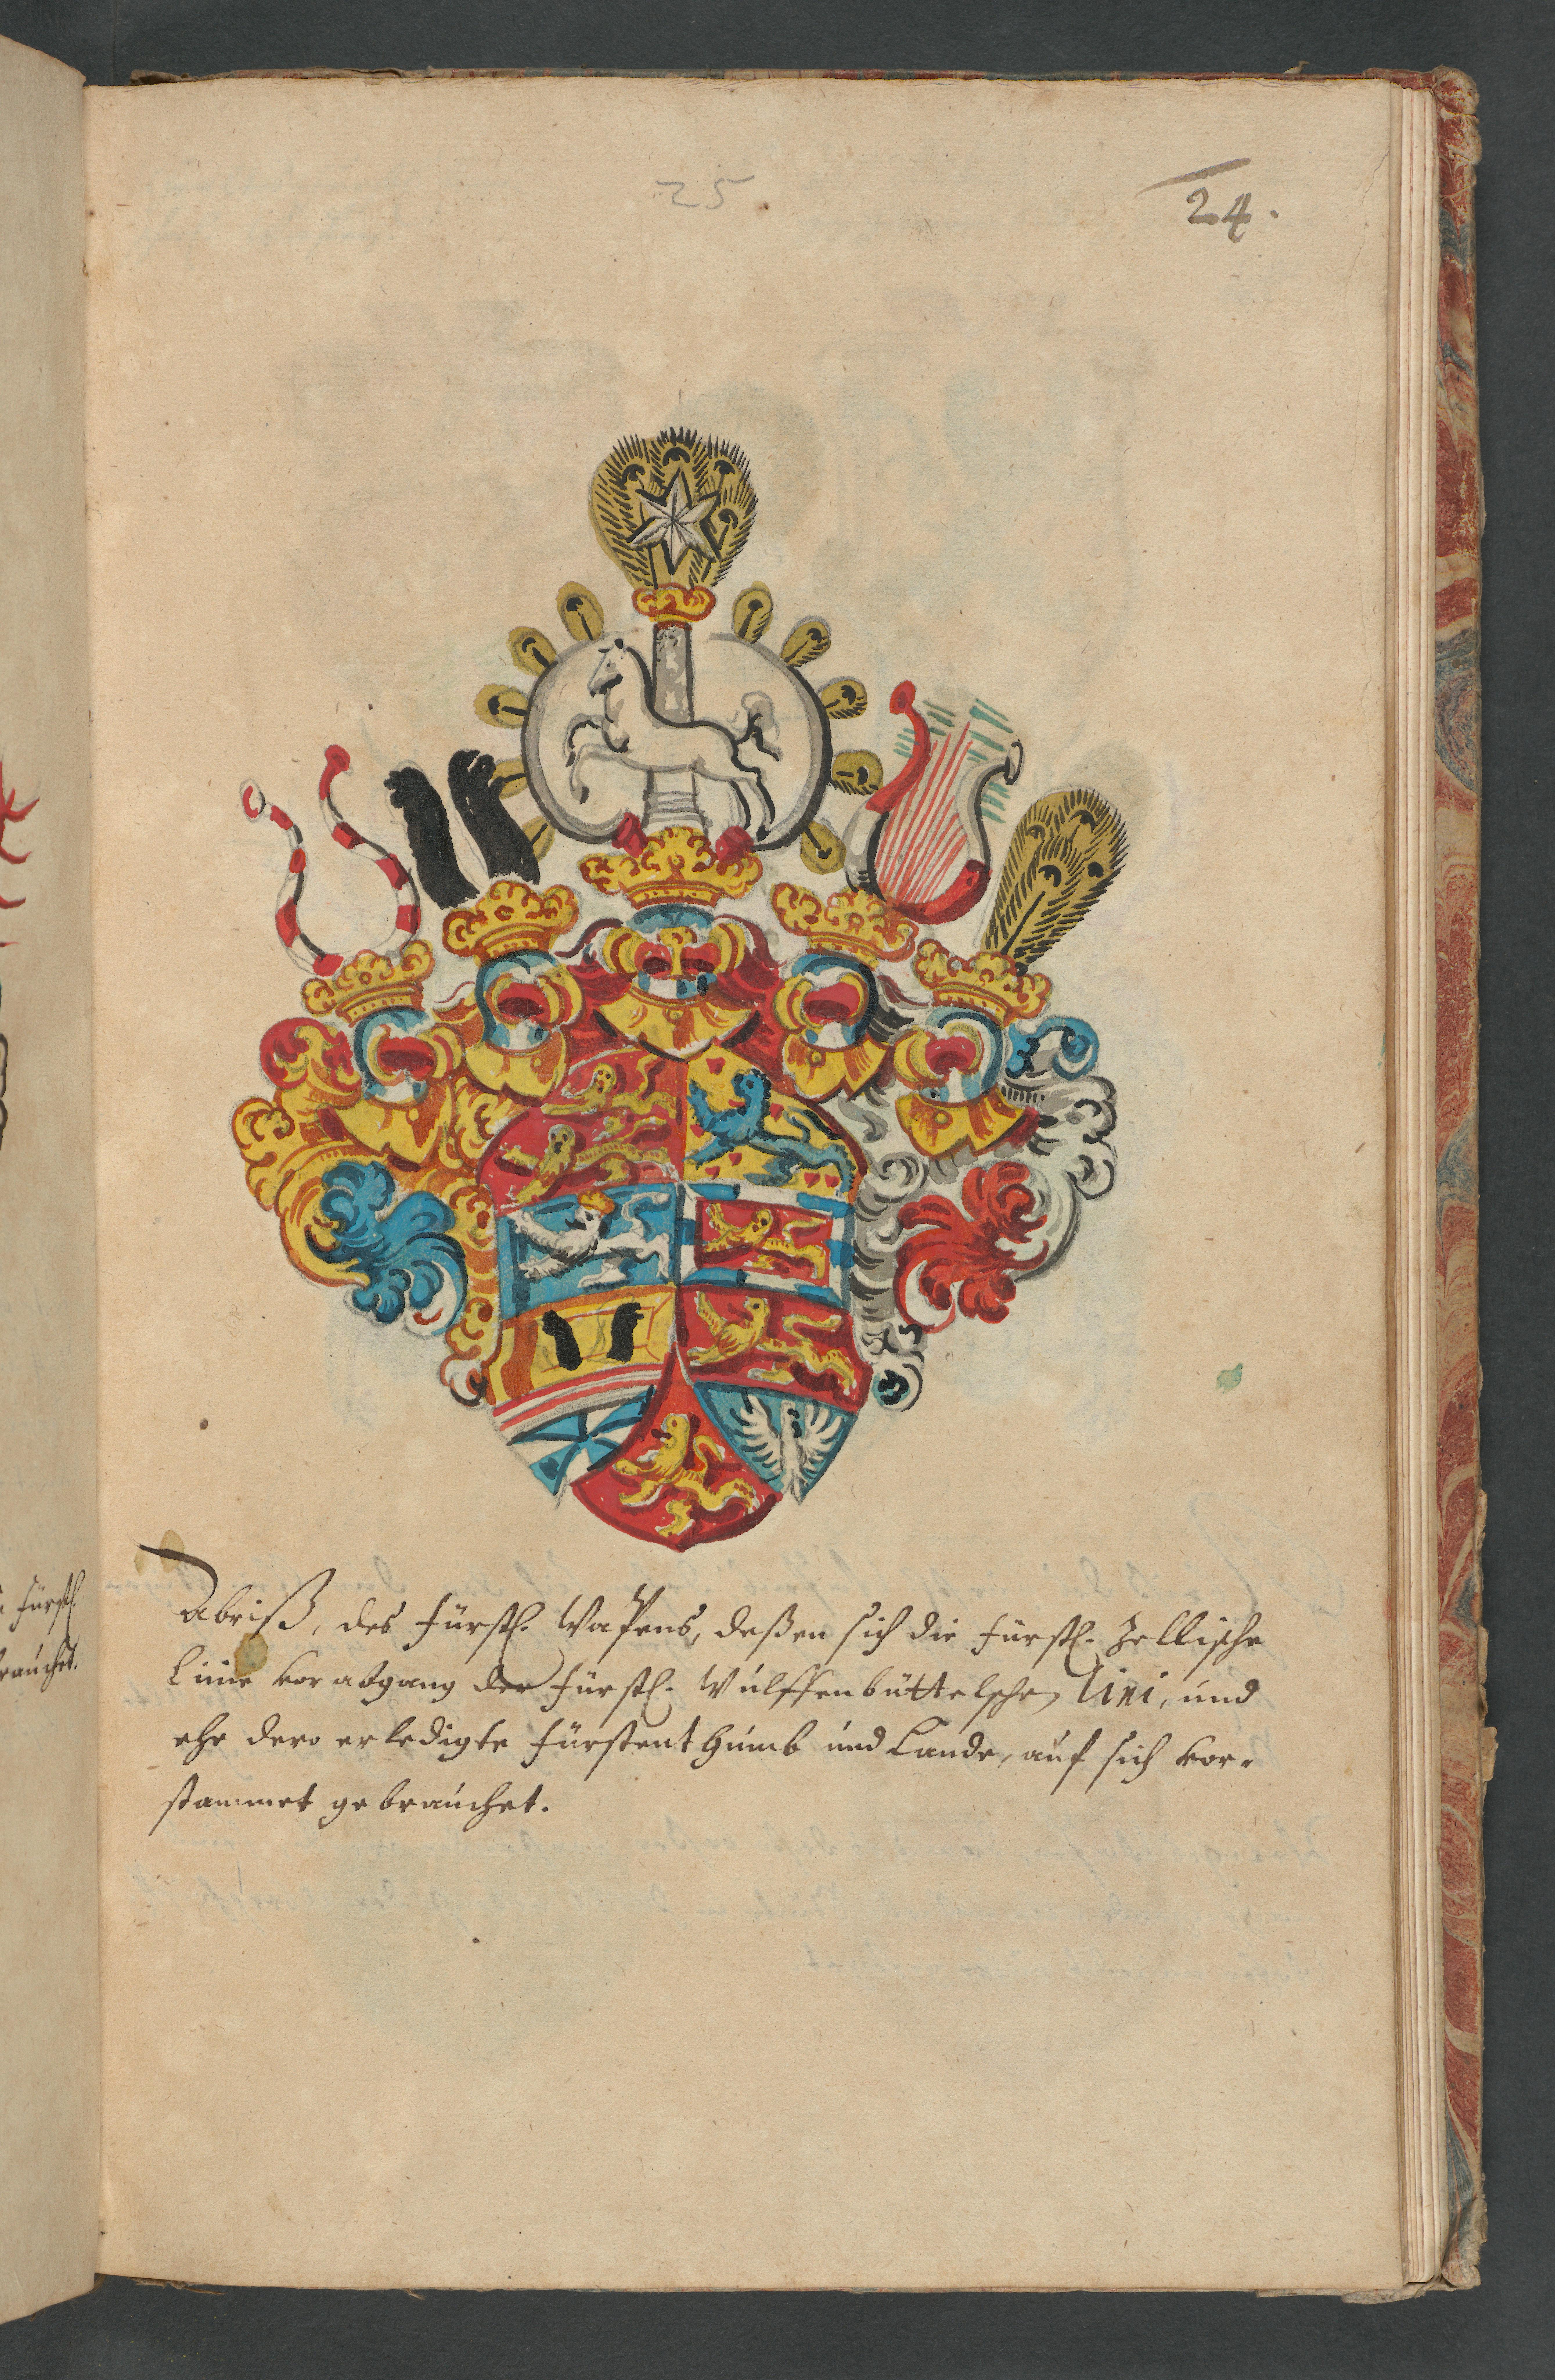 25
24.
Abriß, des Fürstl. Wapens, deßen sich die Fürstl. Zellische
Linie vor abgang der Fürstl. Wulffenbüttelschen Lini, und
ehe dero erledigte Fürstenthumb und Lande, auf sich ver-
stammet gebrauchet.
Fürstl.
brauchet.